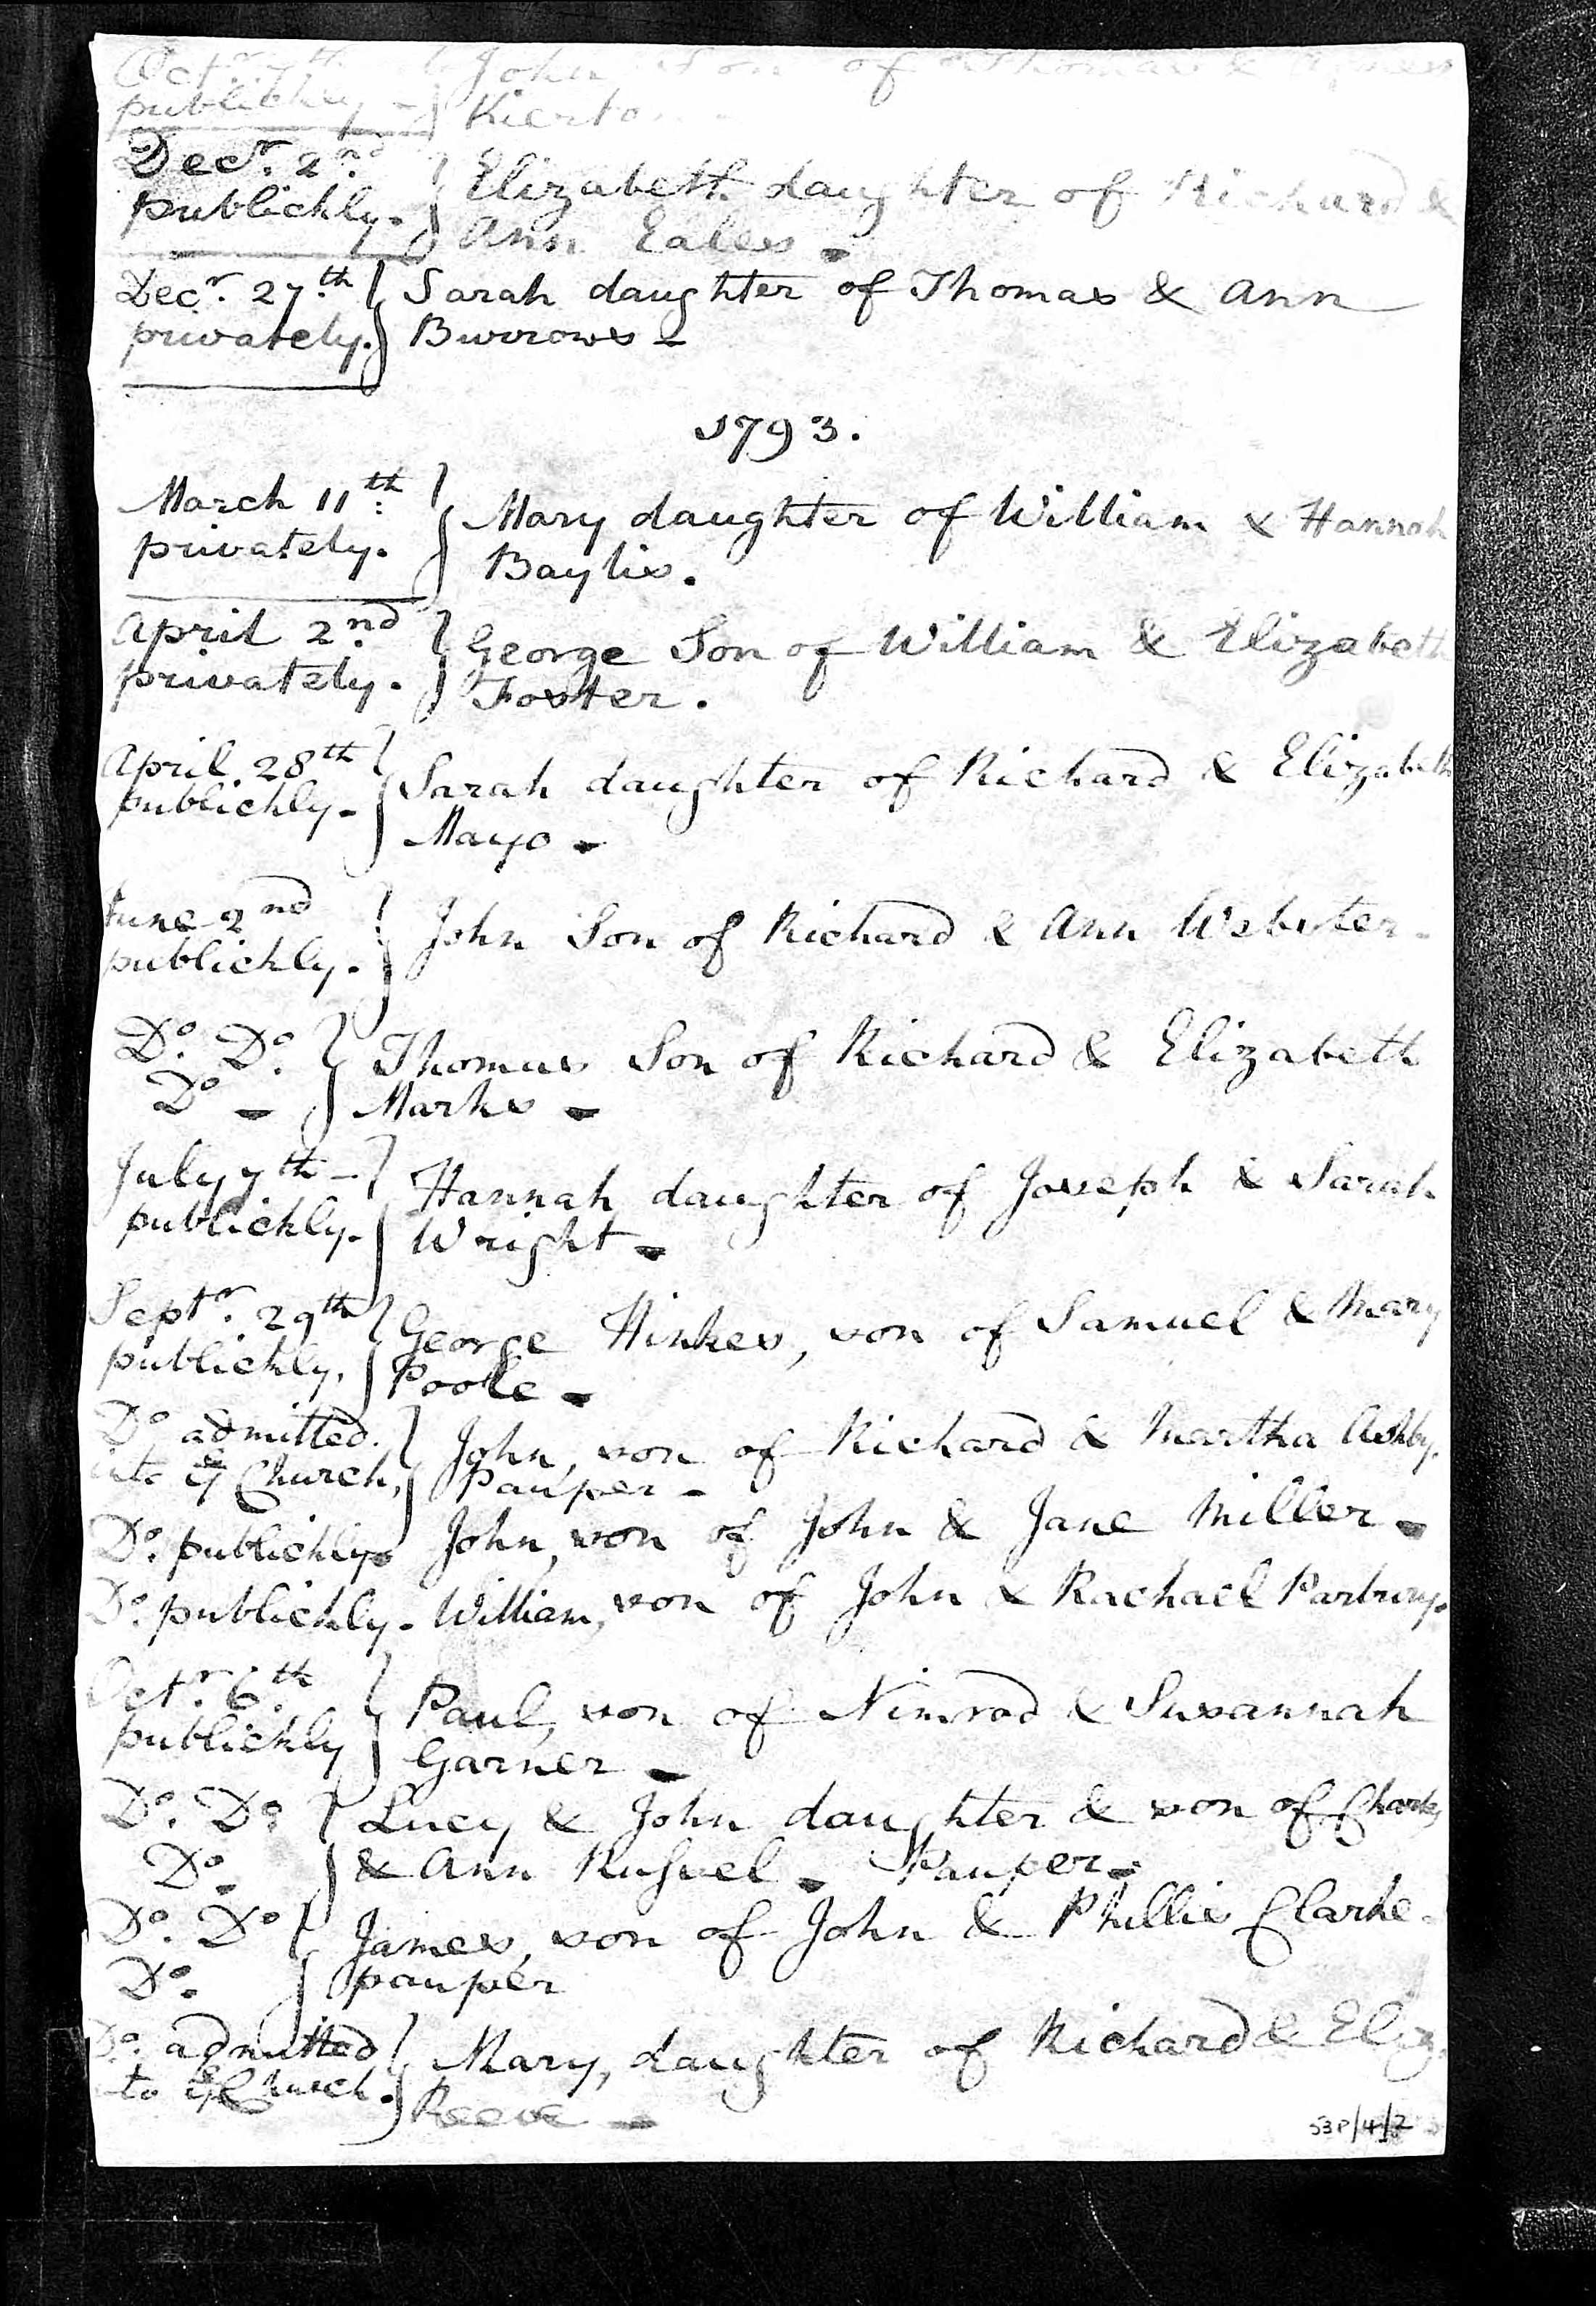 Octr. 7th John Son of Thomas & Agnes
publickly -
Decr. 2nd Elizabeth daughter of Richard &
publickly. Ann Eales -
Decr. 27th Sarah daughter of Thomas & Ann
privately. Burrows -
1793.
March 11th Mary daughter of William & Hannah
privately. Baylis.
April 2nd George Son of William & Elizabeth
privately. Foster.
April 28th Sarah daughter of Richard & Elizabeth
publickly - Mayo -
June 2nd John Son of Richard & Ann Webster -
publickly.
Do. Do. Thomas Son of Richard & Elizabeth
Do - Marks -
July 7th - Hannah daughter of Joseph & Sarah
publickly. Wright -
Septr. 29th George Hinkes, son of Samuel & Mary
publickly. Poole -
Do admitted John, son of Richard & Martha Ashby.
into ye Church, Pauper -
Do. publickly. John, son of John & Jane Miller -
Do. publickly. William, son of John & Rachael Parbury.
Octr. 6th Paul, son of Nimrod & Susannah
publickly Garner -
Do. Do. Lucy & John daughter & son of Charles
Do. & Ann Russel - Pauper -
Do. Do James, son of John & Phillis Clarke -
Do. pauper
Do. admitted Mary, daughter of Richard & Eliz.
to ye Church. Reeve -
53P/4/2